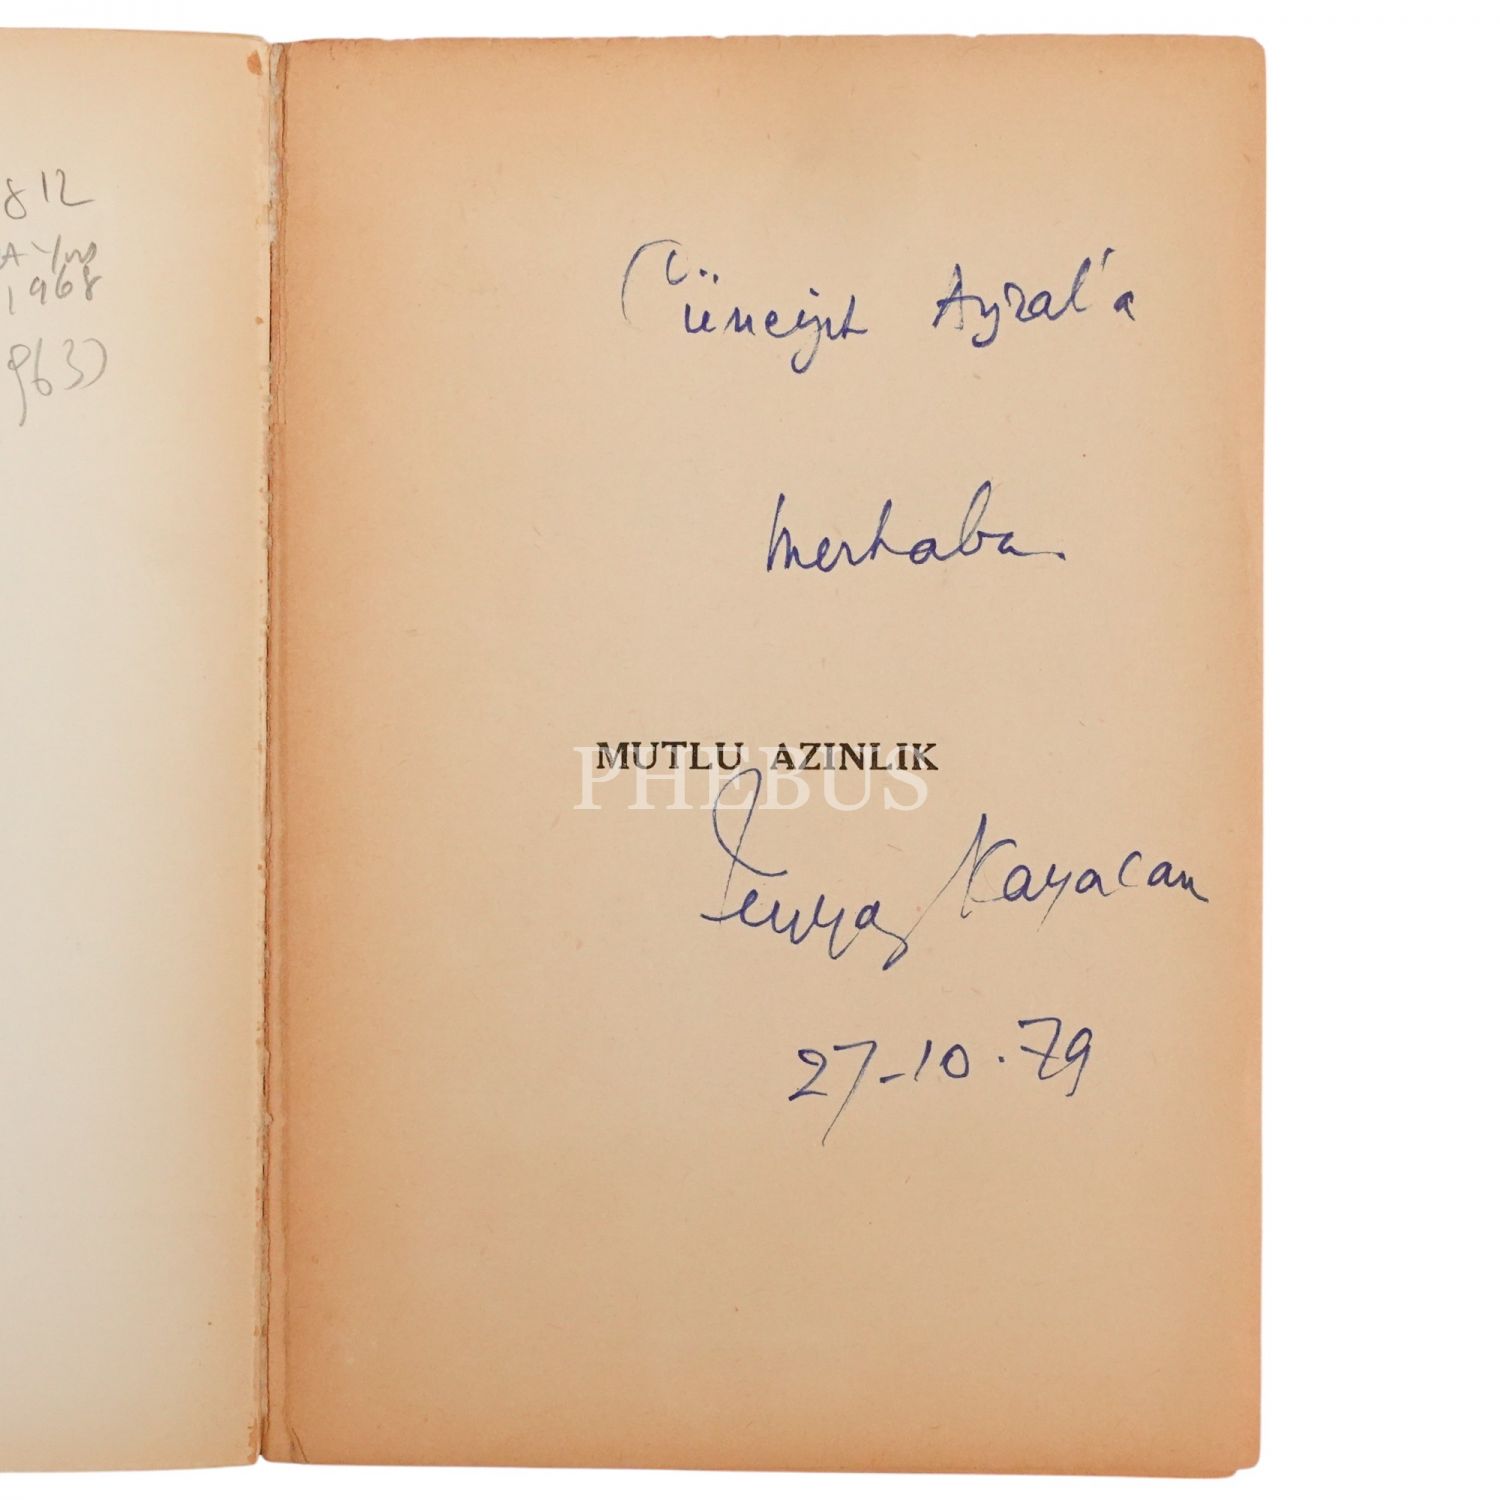 812
1968
963)
Cüneyt Ayral'a
Merhaba.
MUTLU AZINLIK
PHEBUS
Feyyaz Kayacan
27-10.79